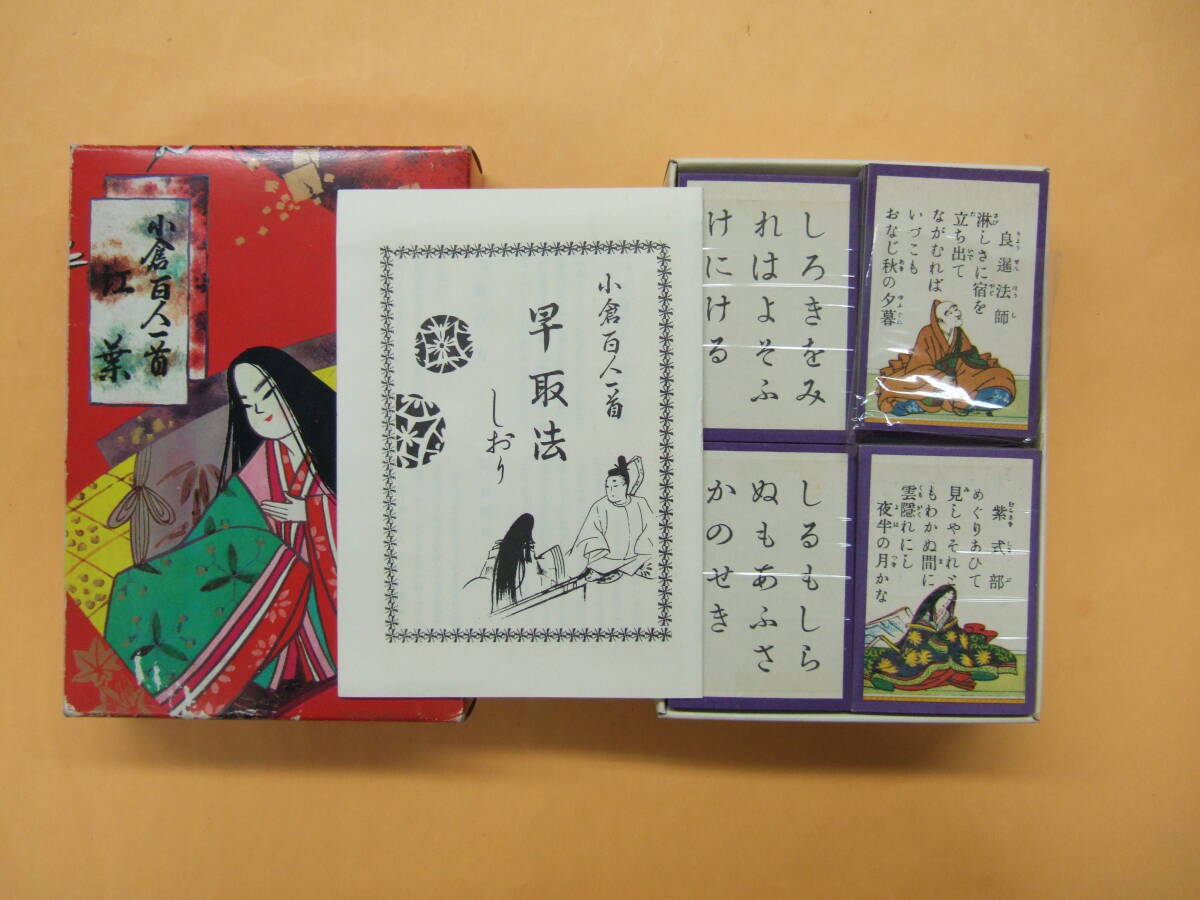 小倉百人一首
紅葉
小倉百人一首
早取法
しおり
しろきをみ
れはよそふ
けにける
良暹法師
淋しさに宿を
立ち出て
ながむれば
いづこも
おなじ秋の夕暮
しるもしら
ぬもあふさ
かのせき
紫式部
めぐりあひて
見しやそれと
もわかぬ間に
雲隠れにし
夜半の月かな